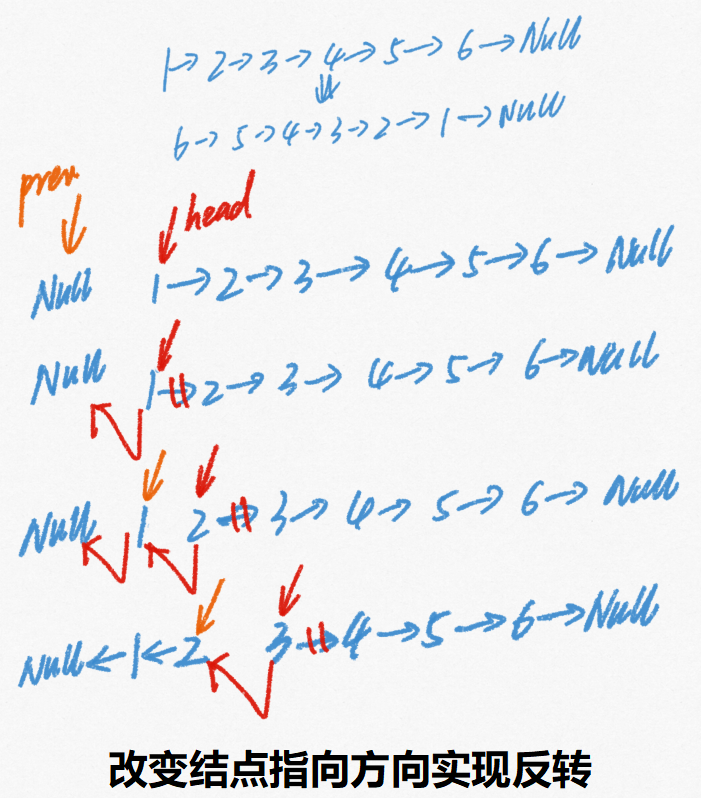 1→2→3→4→5→6→Null
6→5→4→3→2→1→Null
prev
head
Null 1→2→3→4→5→6→Null
Null 1→2→3→4→5→6→Null
Null 1 2→3→4→5→6→Null
Null←1←2 3→4→5→6→Null
改变结点指向方向实现反转